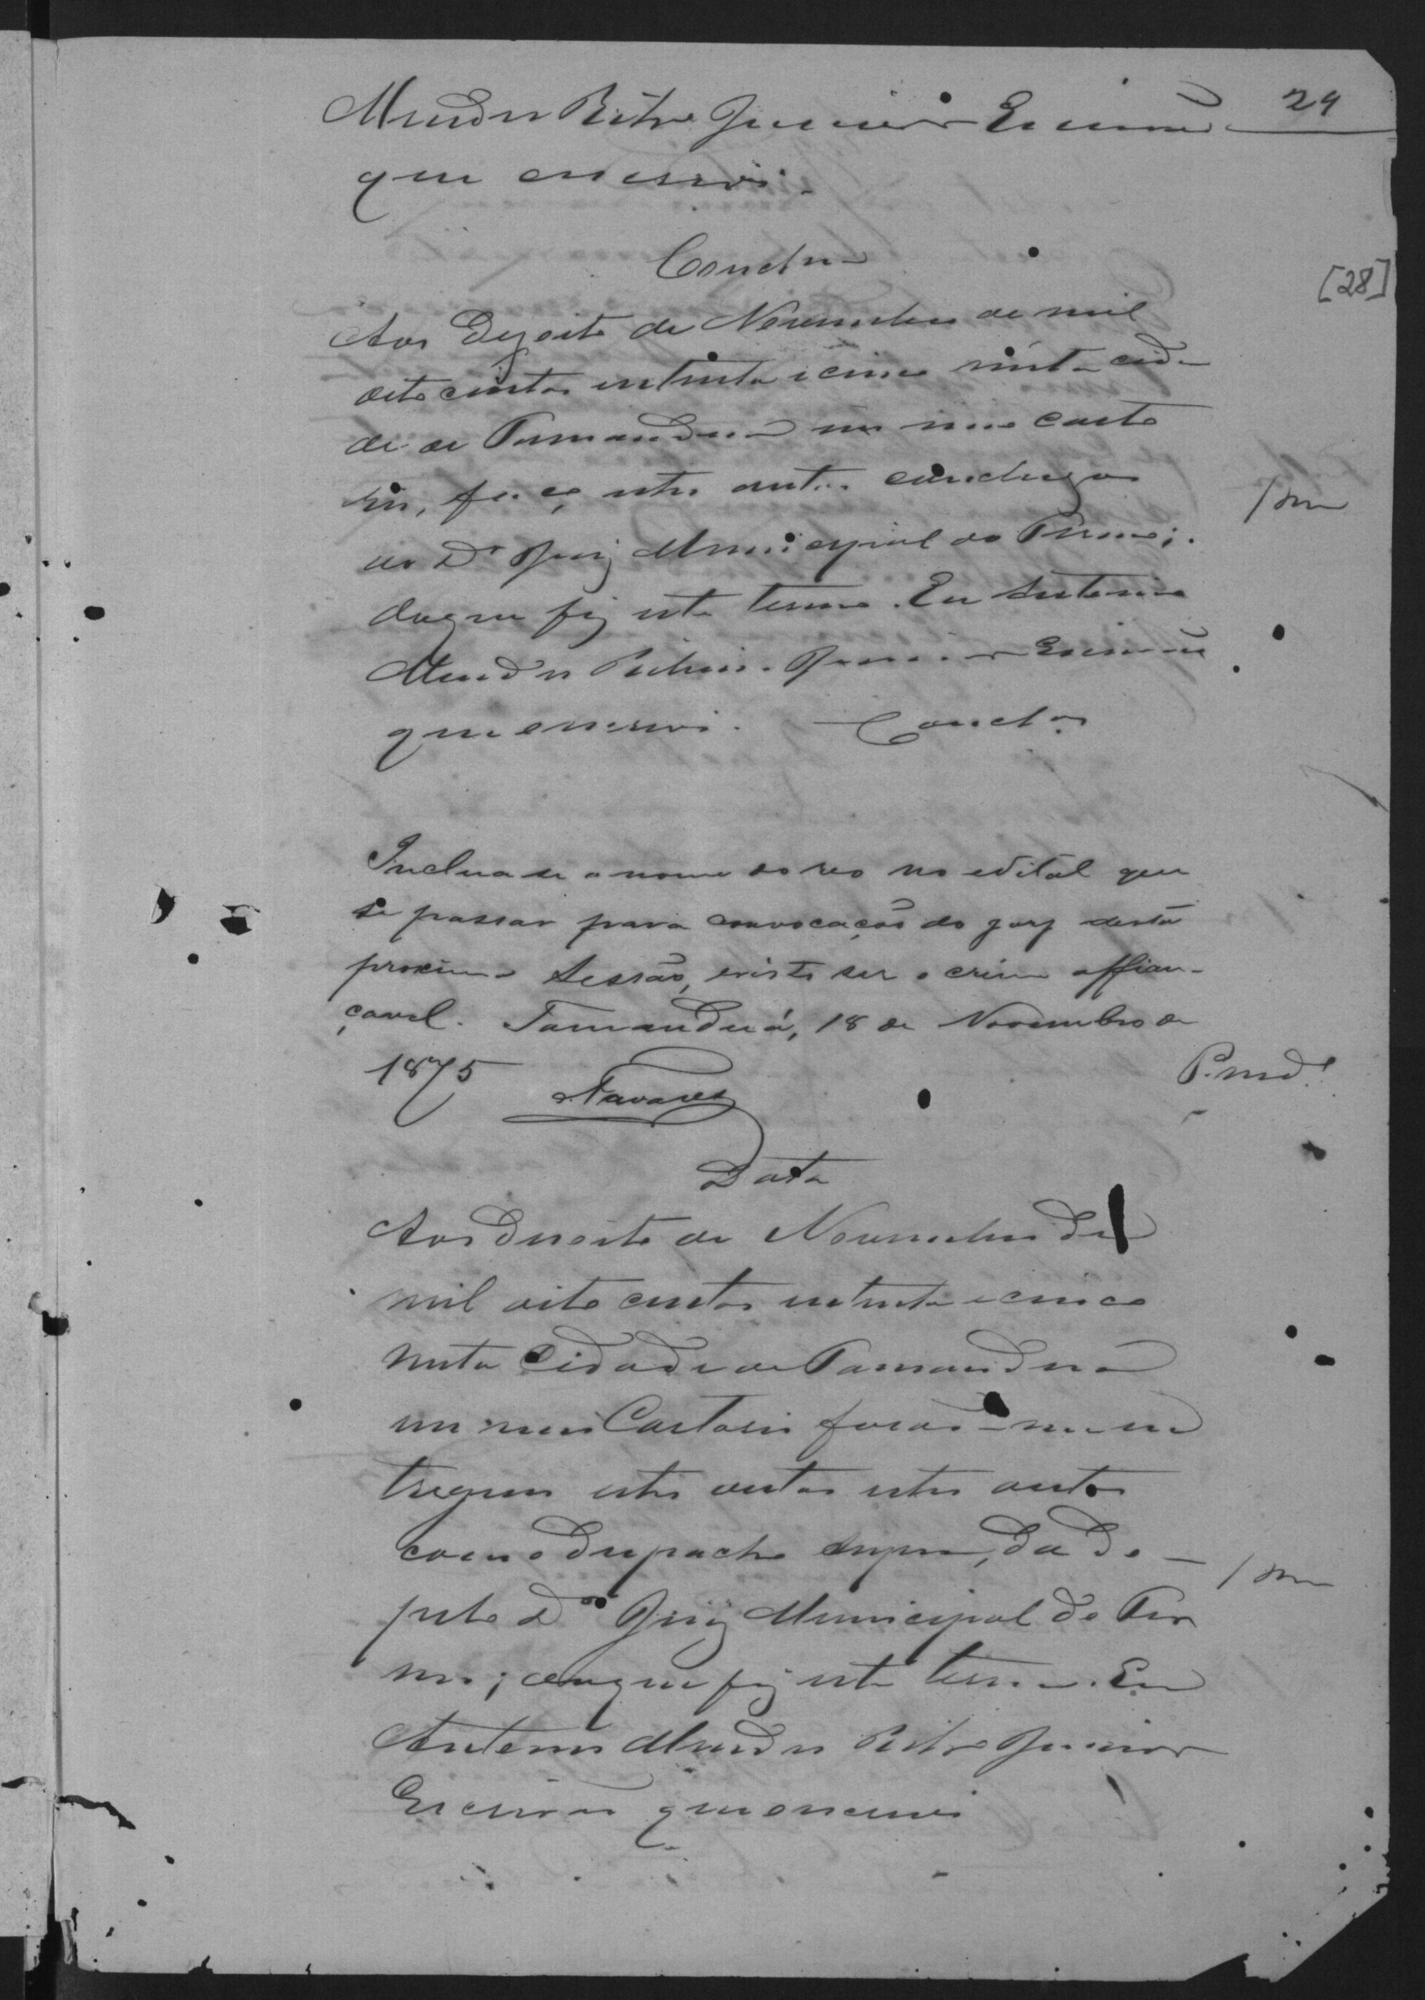 Mendes Ribr.o Junior Escrivão 29
que escrevi.
Conclm
[28]
Aos Dezoito de Novembro de mil
oito centos e setenta e cinco nésta cida
de de Tamanduá em meu carto
rio, faço estes autos conclusos
ao Dr Juiz Municipal do Termo;
doque fiz este termo. Eu Antonio
Mendes Ribeiro Junior Escrivão
que escrevi. Conclos
Inclua se o nome do reo no edital que
se passar para convocação do jury desta
proxima sessão, visto ser o crime affian-
çavel. Tamanduá, 18 de Novembro de
1875 Tavares
Data
Aos Desoito de Novembro de
mil oito centos e setenta e cinco
nesta Cidade de Tamanduá
em meu Cartorio forão-me en
tregues estes autos estes autos
com o Despacho supra, dado
pelo Dr Juiz Municipal do Ter
mo; doque fiz este termo. Eu
Antonio Mendes Ribro Junior
Escrivão que escrevi